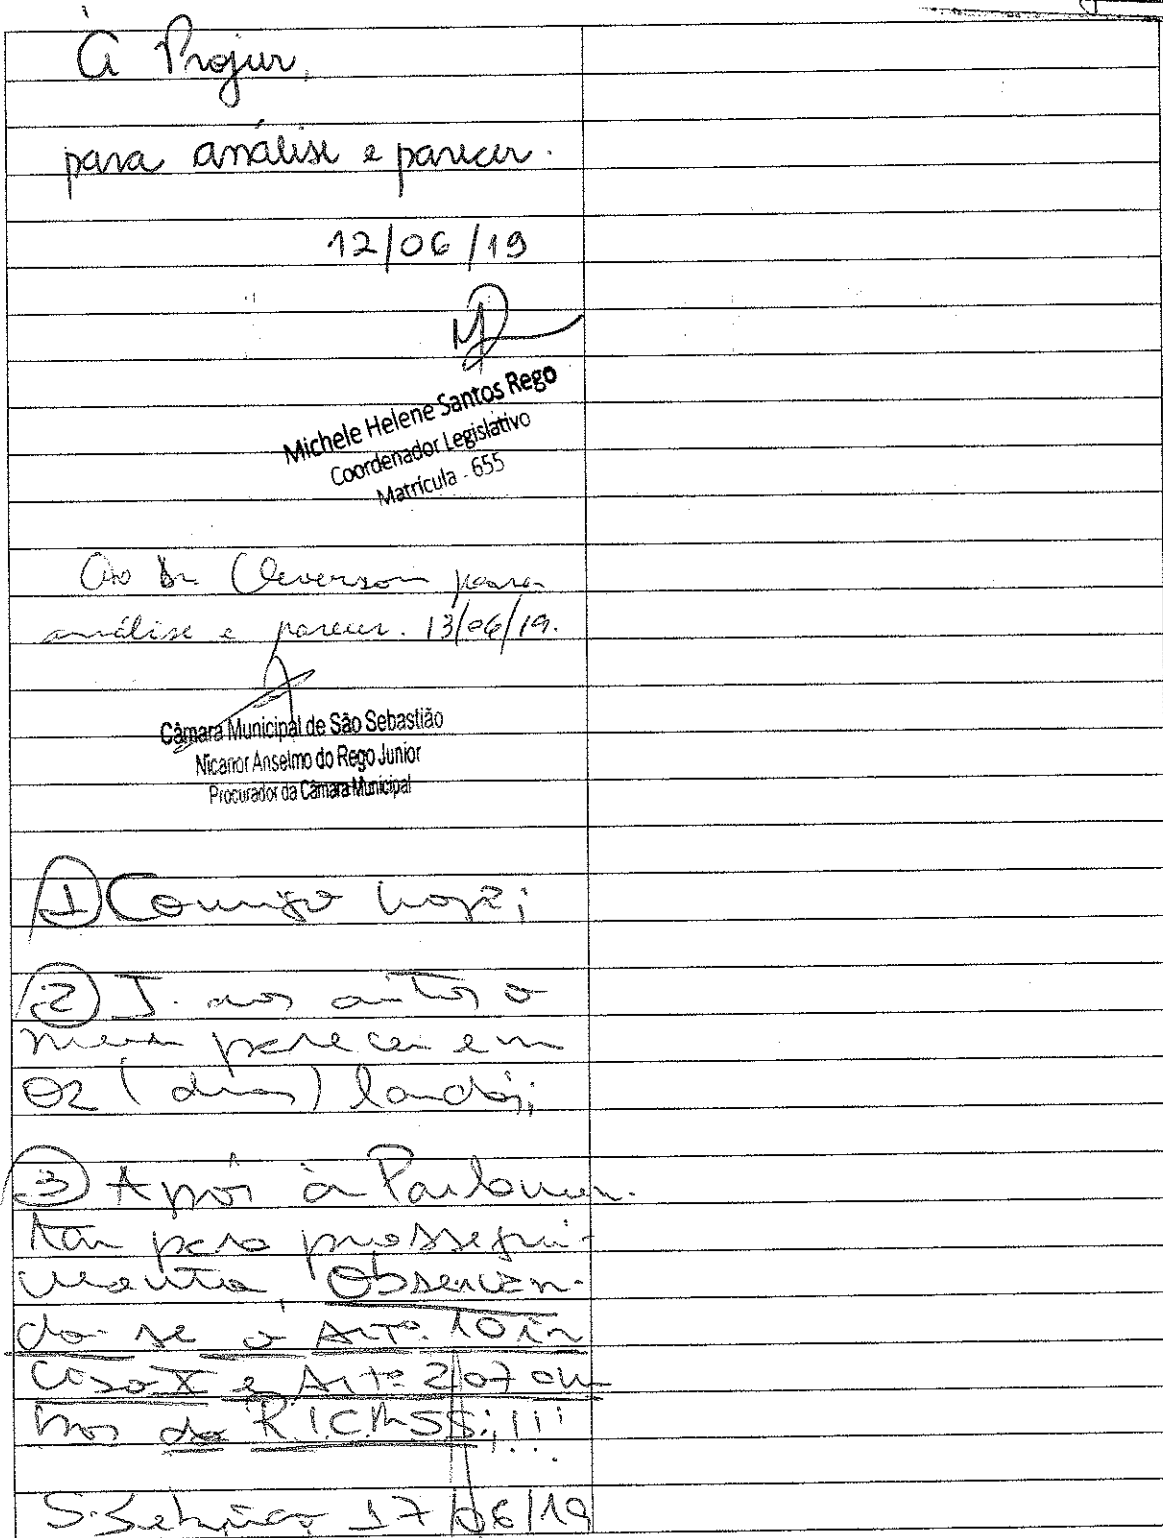 À Projur,
para análise e parecer.
12/06/19
Michele Helene Santos Rego
Coordenador Legislativo
Matrícula - 655
Ao Dr. Cleverson para
análise e parecer. 13/06/19.
Câmara Municipal de São Sebastião
Nicanor Anselmo do Rego Junior
Procurador da Câmara Municipal
1 Comigo hoje;
2 J. aos autos o
meu parecer em
02 (duas) laudas;
3 Após à Parlamen-
tar para prossegui-
mento, observan-
do-se o Artº. 10 in
ciso X e Artº 207 am
bos do R.I.C.M.SS;!!!
S. Sebastião 17/06/19